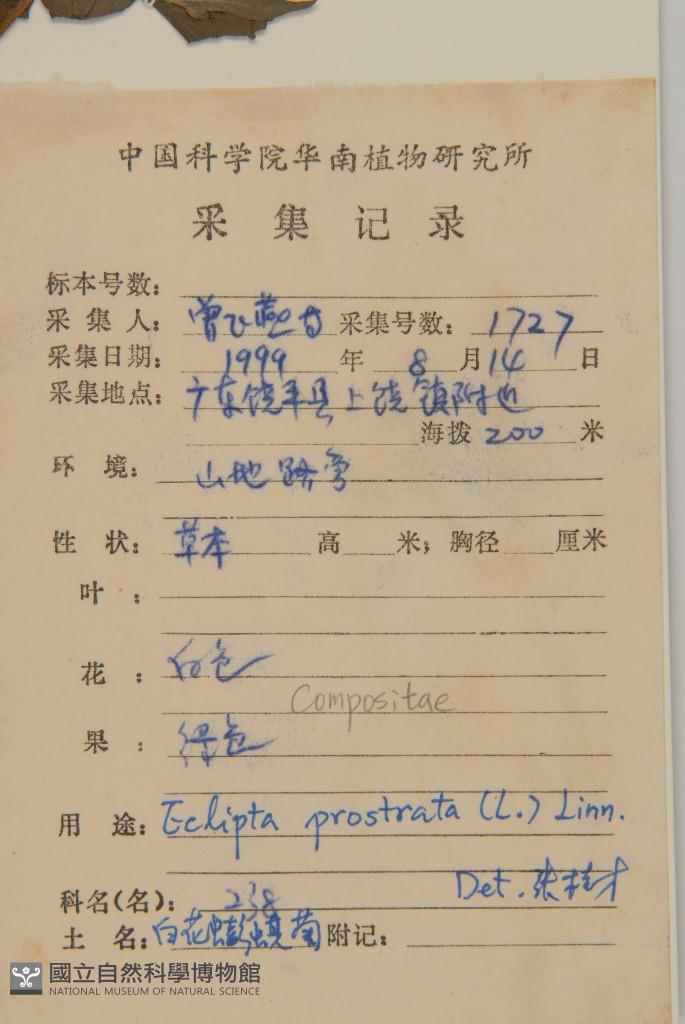 中国科学院华南植物研究所
采集记录
标本号数:
采集人: 曾飞燕等 采集号数: 1727
采集日期: 1999 年 8 月 14 日
采集地点: 广东饶平县上饶镇附近
海拨 200 米
环境: 山地路旁
性状: 草本 高 米; 胸径 厘米
叶:
花: 白色
Compositae
果: 绿色
用途: Eclipta prostrata (L.) Linn.
Det. 张桂才
科名(名): 238
土名: 白花蟛蜞菊 附记:
國立自然科學博物館
NATIONAL MUSEUM OF NATURAL SCIENCE